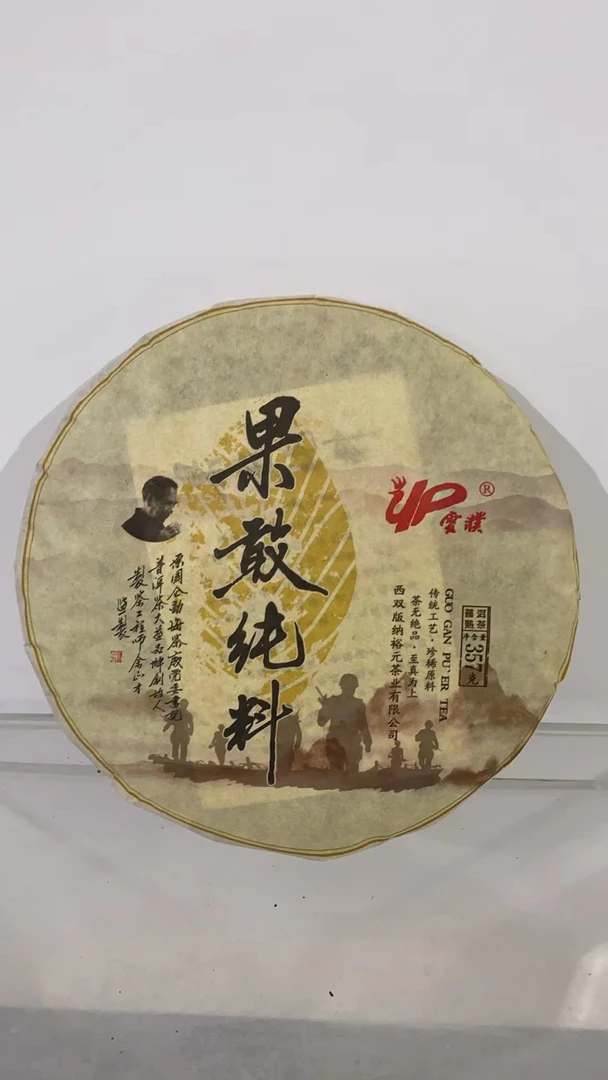 果敢纯料
YP®
雲濮
GUO GAN PU'ER TEA
传统工艺·珍稀原料
茶无绝品·至真为上
西双版纳裕元茶业有限公司
普洱
熟茶
净含量
357克
原国企勐海茶廠党委書记
普洱茶大益品牌创始人
製茶工程师
监製